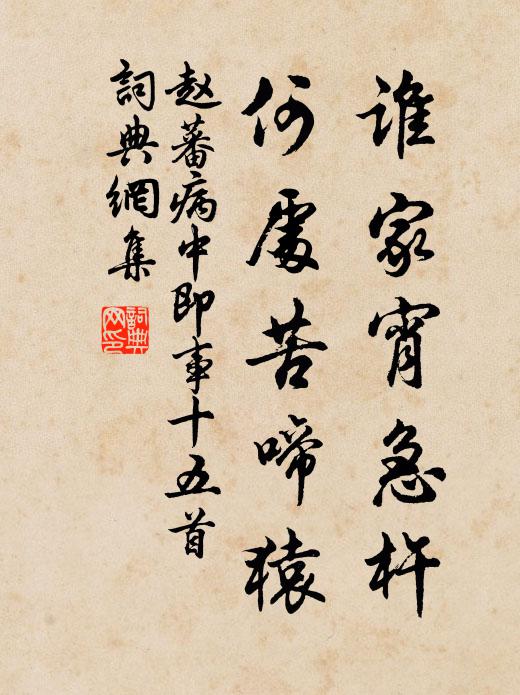 誰家宵急杵
何處苦啼猿
赵蕃病中即事十五首
詞典網集
詞典網印